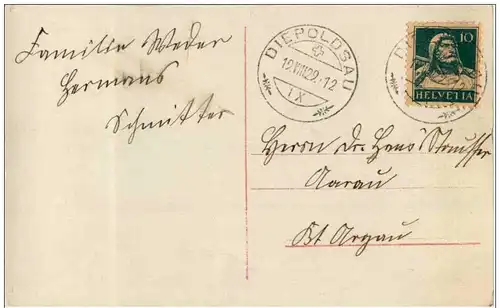 Familie Weder
Hermans
Schmitter
DIEPOLDSAU
12.VIII.29-12
IX
10
HELVETIA
Herrn Dr. Hans Stausser
Aarau
Kt Argau